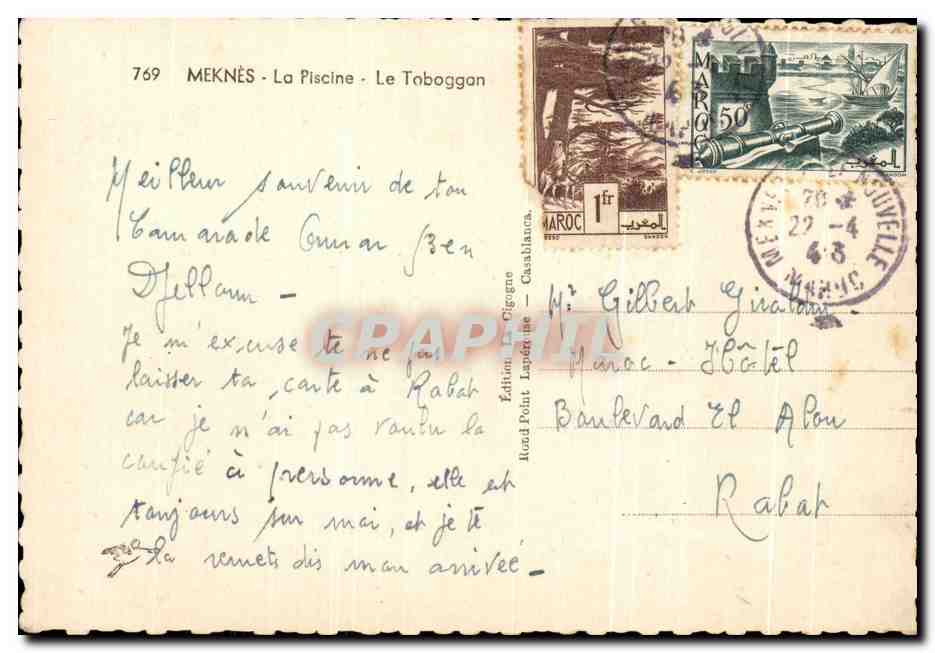 769 MEKNÈS - La Piscine - Le Toboggan
Meilleur souvenir de ton
Camarade Omar Ben
Djelloun -
Je m'excuse te ne pas
laisser ta carte à Rabat
car je n'ai pas voulu la
confié à personne, elle est
toujours sur moi, et je te
la remets dis mon arrivée -
Édition La Cigogne
Rond Point Lapérouse - Casablanca.
MAROC 1fr
المغرب
MAROC 50c
المغرب
MEKNÈS VILLE NOUVELLE
22 - 4
43
MAROC
Mr Gilbert
Maroc - Hôtel
Boulevard El Alou
Rabat
CPAPHIL